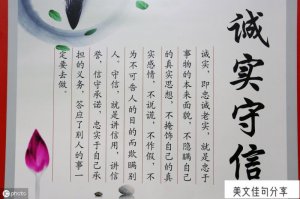 诚实守信
诚实，即忠诚老实，就是忠于
事物的本来面貌，不隐瞒自己
的真实思想，不掩饰自己的真
实感情，不说谎，不作假，不
为不可告人的目的而欺瞒别
人。守信，就是讲信用，讲信
誉，信守承诺，忠实于自己承
担的义务，答应了别人的事一
定要去做。
美文佳句分享
photo